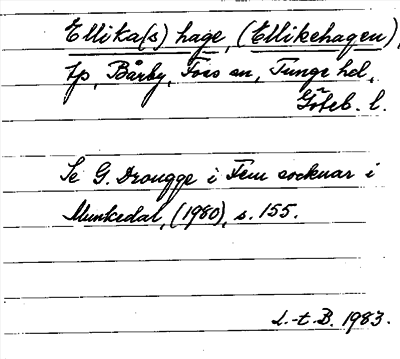 Ellika(s) hage, (Ellikehagen),
tp, Bärby, Foss sn, Tunge hd,
Göteb. l.
Se G. Drougge i Fem socknar i
Munkedal, (1980), s. 155.
L.-t. B. 1983.